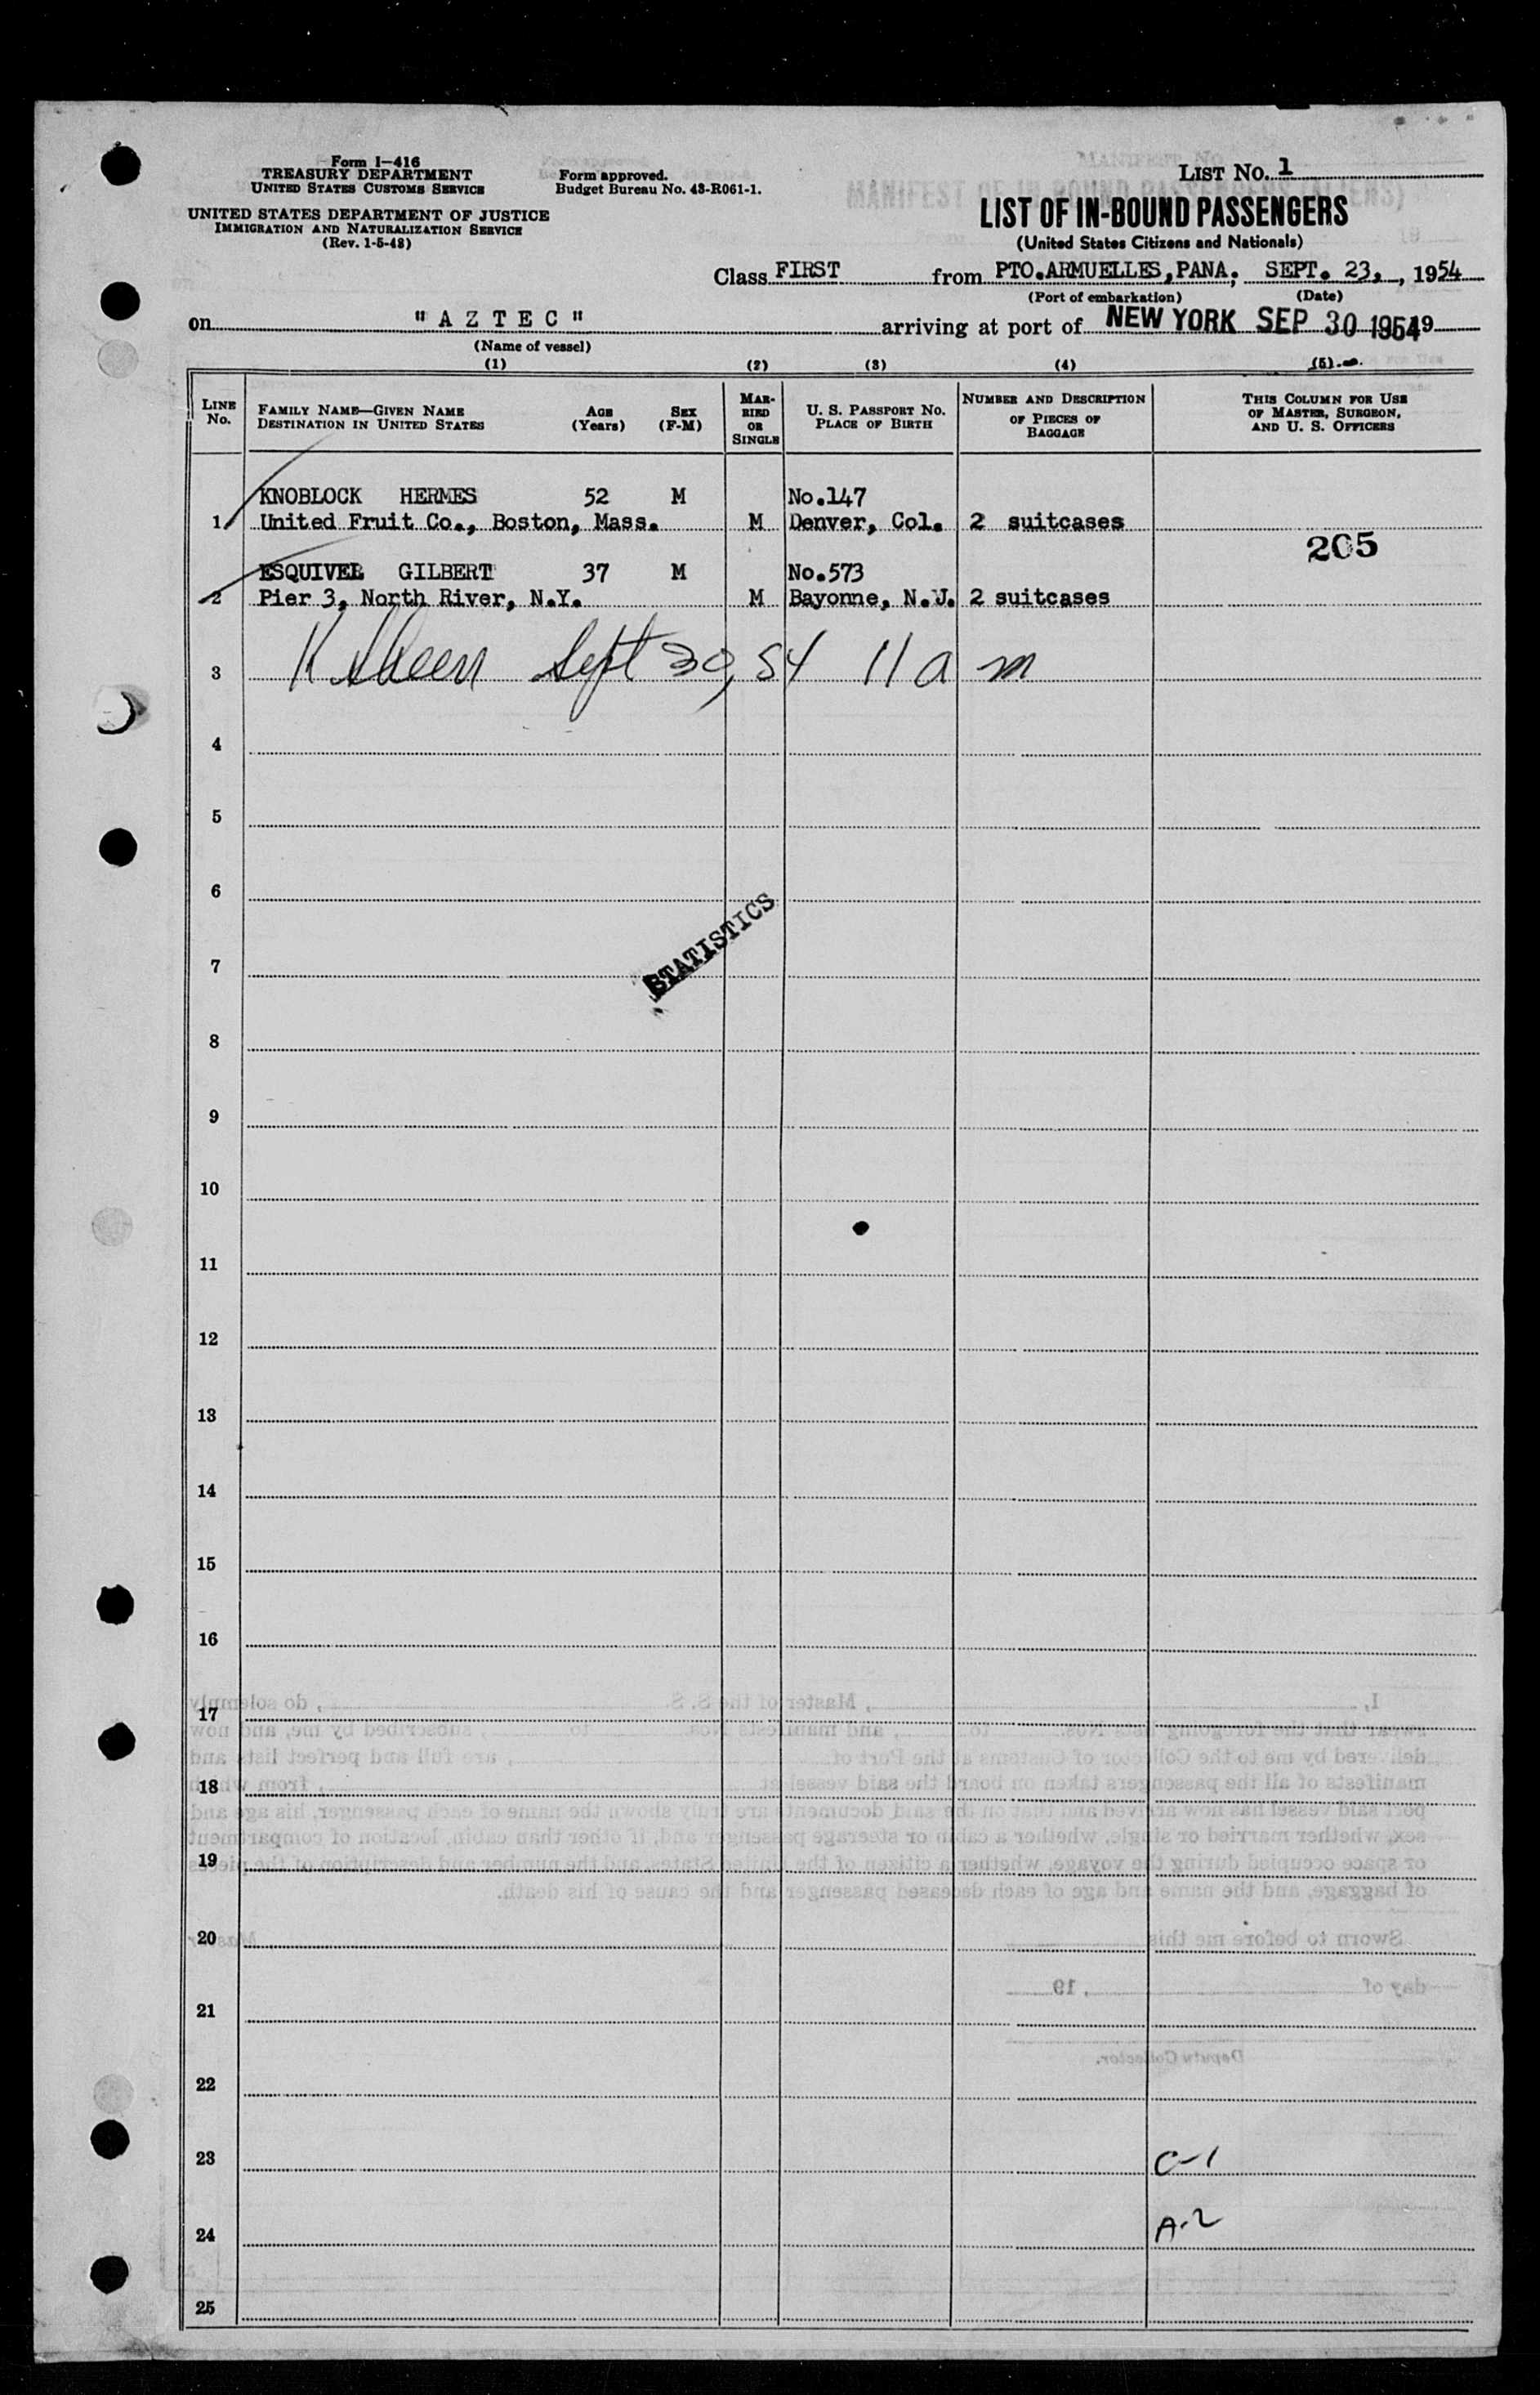 Form I-416
TREASURY DEPARTMENT
UNITED STATES CUSTOMS SERVICE
UNITED STATES DEPARTMENT OF JUSTICE
IMMIGRATION AND NATURALIZATION SERVICE
(Rev. 1-5-48)
Form approved.
Budget Bureau No. 43-R061-1.
LIST No. 1
LIST OF IN-BOUND PASSENGERS
(United States Citizens and Nationals)
Class FIRST from PTO.ARMUELLES,PANA; SEPT. 23, , 1954
(Port of embarkation) (Date)
on " A Z T E C " arriving at port of NEW YORK SEP 30 1954 19
(Name of vessel)
(1) (2) (3) (4) (5)
LINE No.
FAMILY NAME—GIVEN NAME
DESTINATION IN UNITED STATES
AGE (Years)
SEX (F-M)
MARRIED OR SINGLE
U. S. PASSPORT No.
PLACE OF BIRTH
NUMBER AND DESCRIPTION OF PIECES OF BAGGAGE
THIS COLUMN FOR USE OF MASTER, SURGEON, AND U. S. OFFICERS
KNOBLOCK HERMES 52 M No.147
1 United Fruit Co., Boston, Mass. M Denver, Col. 2 suitcases
205
ESQUIVEL GILBERT 37 M No.573
2 Pier 3, North River, N.Y. M Bayonne, N.J. 2 suitcases
3 Sept 30, 54 11 a m
4
5
6
STATISTICS
7
8
9
10
11
12
13
14
15
16
17
18
19
20
21
22
23 C-1
24 A-2
25